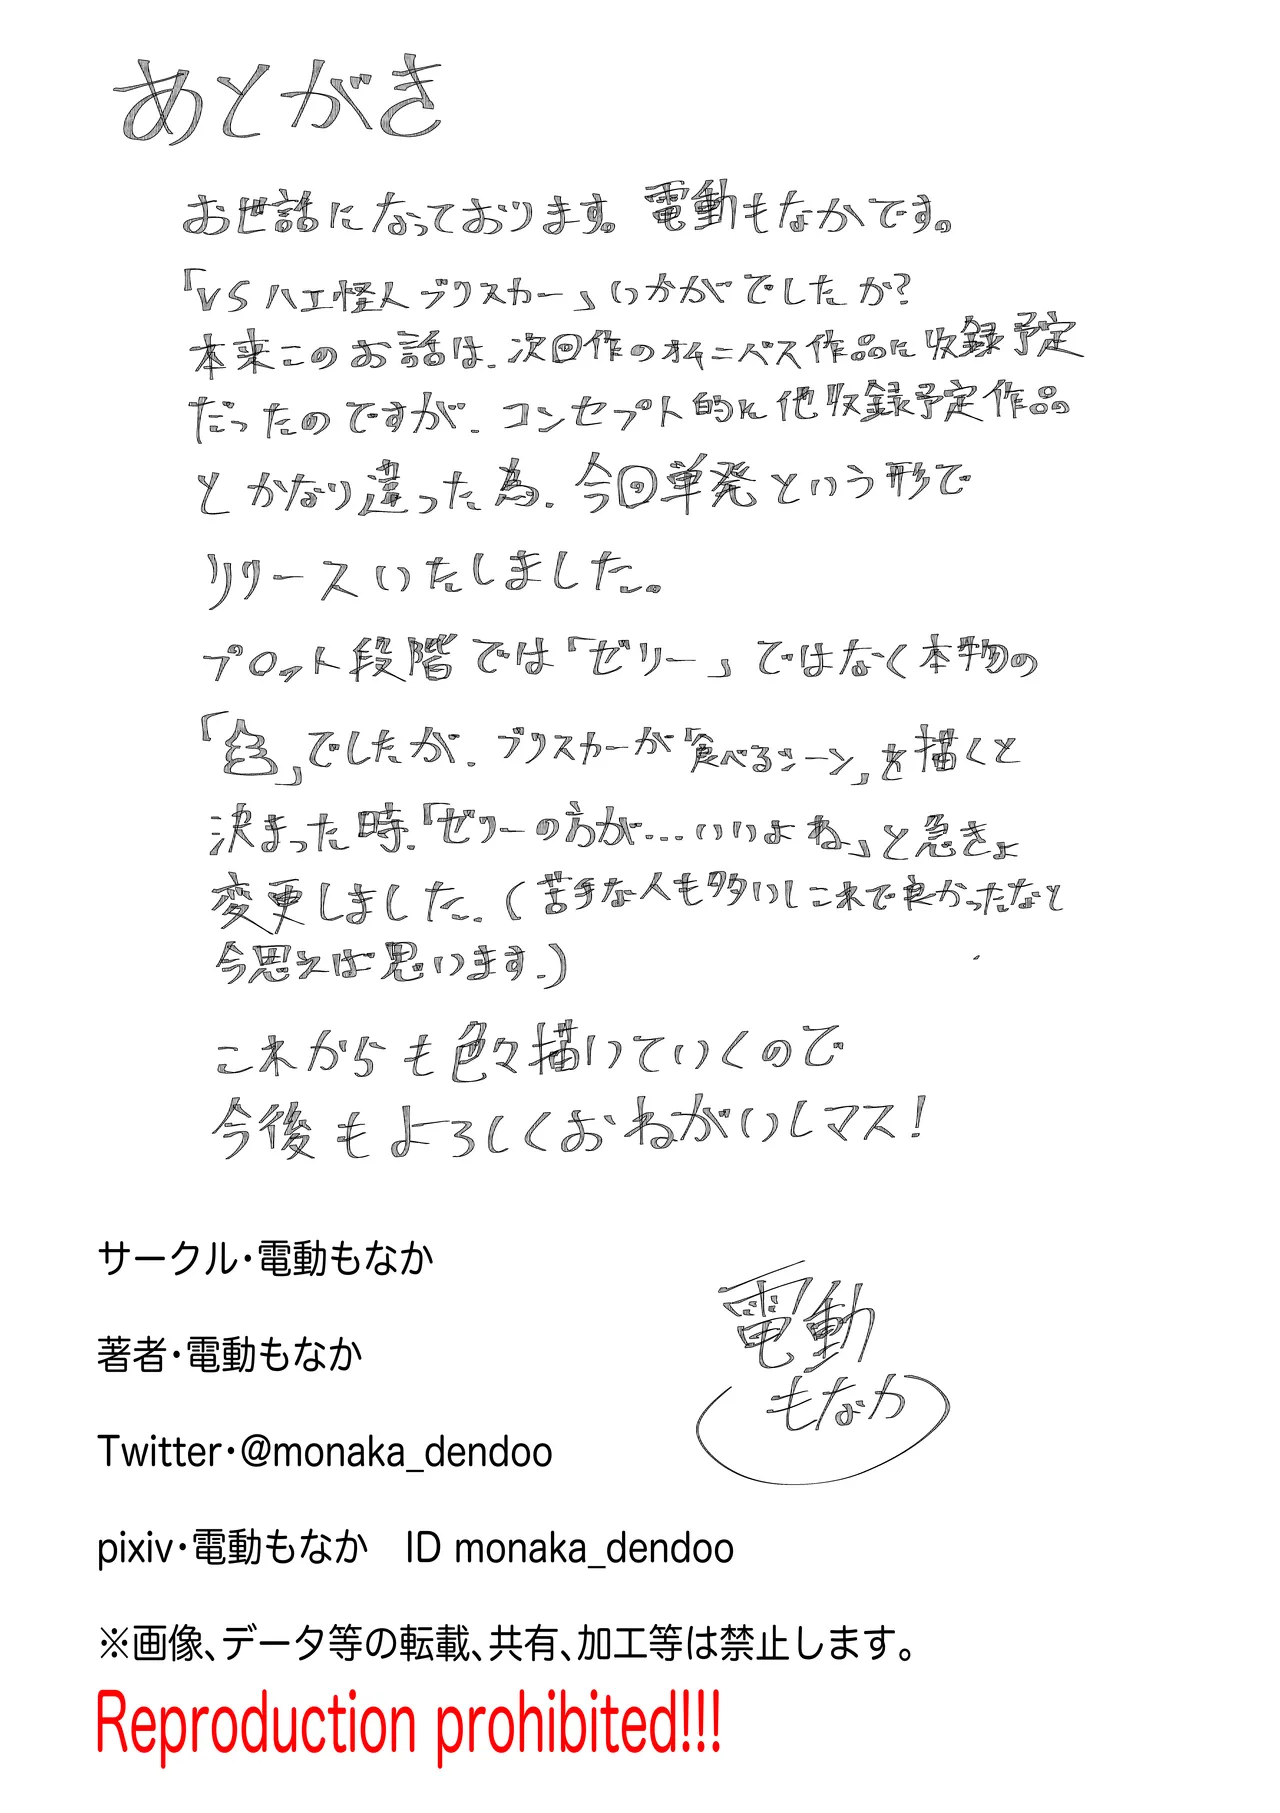 あとがき
お世話になっております。電動もなかです。
「VSハエ怪人ブリスカー」いかがでしたか?
本来このお話は、次回作のオムニバス作品に収録予定
だったのですが、コンセプト的に他収録予定作品
とかなり違った為、今回単発という形で
リリースいたしました。
プロット段階では「ゼリー」ではなく本物の
「」でしたが、ブリスカーが「食べるシーン」を描くと
決まった時、「ゼリーの方が...いいよね」と急きょ
変更しました。(苦手な人も多いしこれで良かったなと
今思えば思います。)
これからも色々描いていくので
今後もよろしくおねがいしマス!
サークル・電動もなか
著者・電動もなか
Twitter・@monaka_dendoo
pixiv・電動もなか ID monaka_dendoo
※画像、データ等の転載、共有、加工等は禁止します。
Reproduction prohibited!!!
電動
もなか